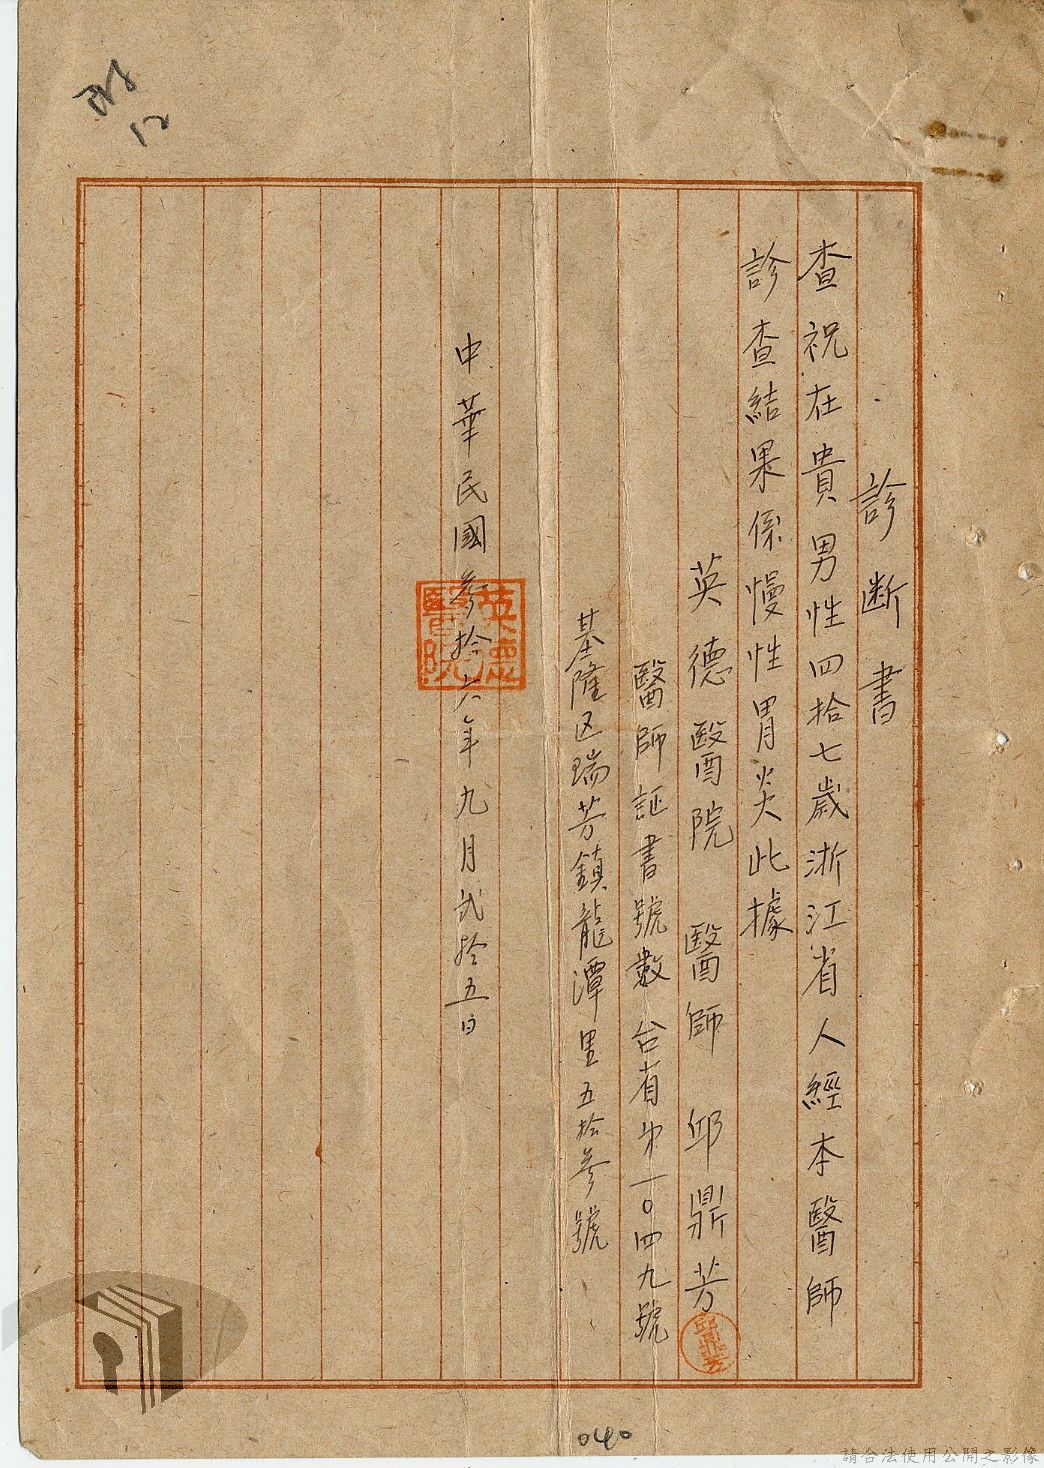 診断書
查祝在貴男性四拾七歲浙江省人經本醫師
診查結果係慢性胃炎此據
英德醫院 醫師 邱鼎芳
邱鼎芳
醫師証書號數台省第一〇四九號
基隆区瑞芳鎮龍潭里五拾參號
中華民國參拾六年九月貳拾五日
英德醫院
12
040
請合法使用公開之影像